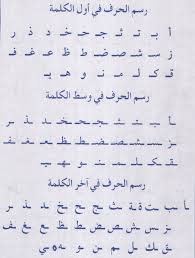 رسم الحرف في أول الكلمة
أ بـ تـ ثـ جـ حـ خـ د ذ ر
ز سـ شـ صـ ضـ ط ظ عـ غـ فـ
قـ كـ لـ مـ نـ و هـ يـ
رسم الحرف في وسط الكلمة
ـا ـبـ ـتـ ـثـ ـجـ ـحـ ـخـ ـد ـذ ـر
ـز ـسـ ـشـ ـصـ ـضـ ـطـ ـظـ ـعـ ـغـ ـفـ
ـقـ ـكـ ـلـ ـمـ ـنـ ـو ـهـ ـيـ
رسم الحرف في آخر الكلمة
ـا ـب ـت ـة ـث ـج ـح ـخ ـد ـذ ـر
ـز ـس ـش ـص ـض ـط ـظ ـع ـغ ـف
ـق ـك ـل ـم ـن ـو ـه ـي